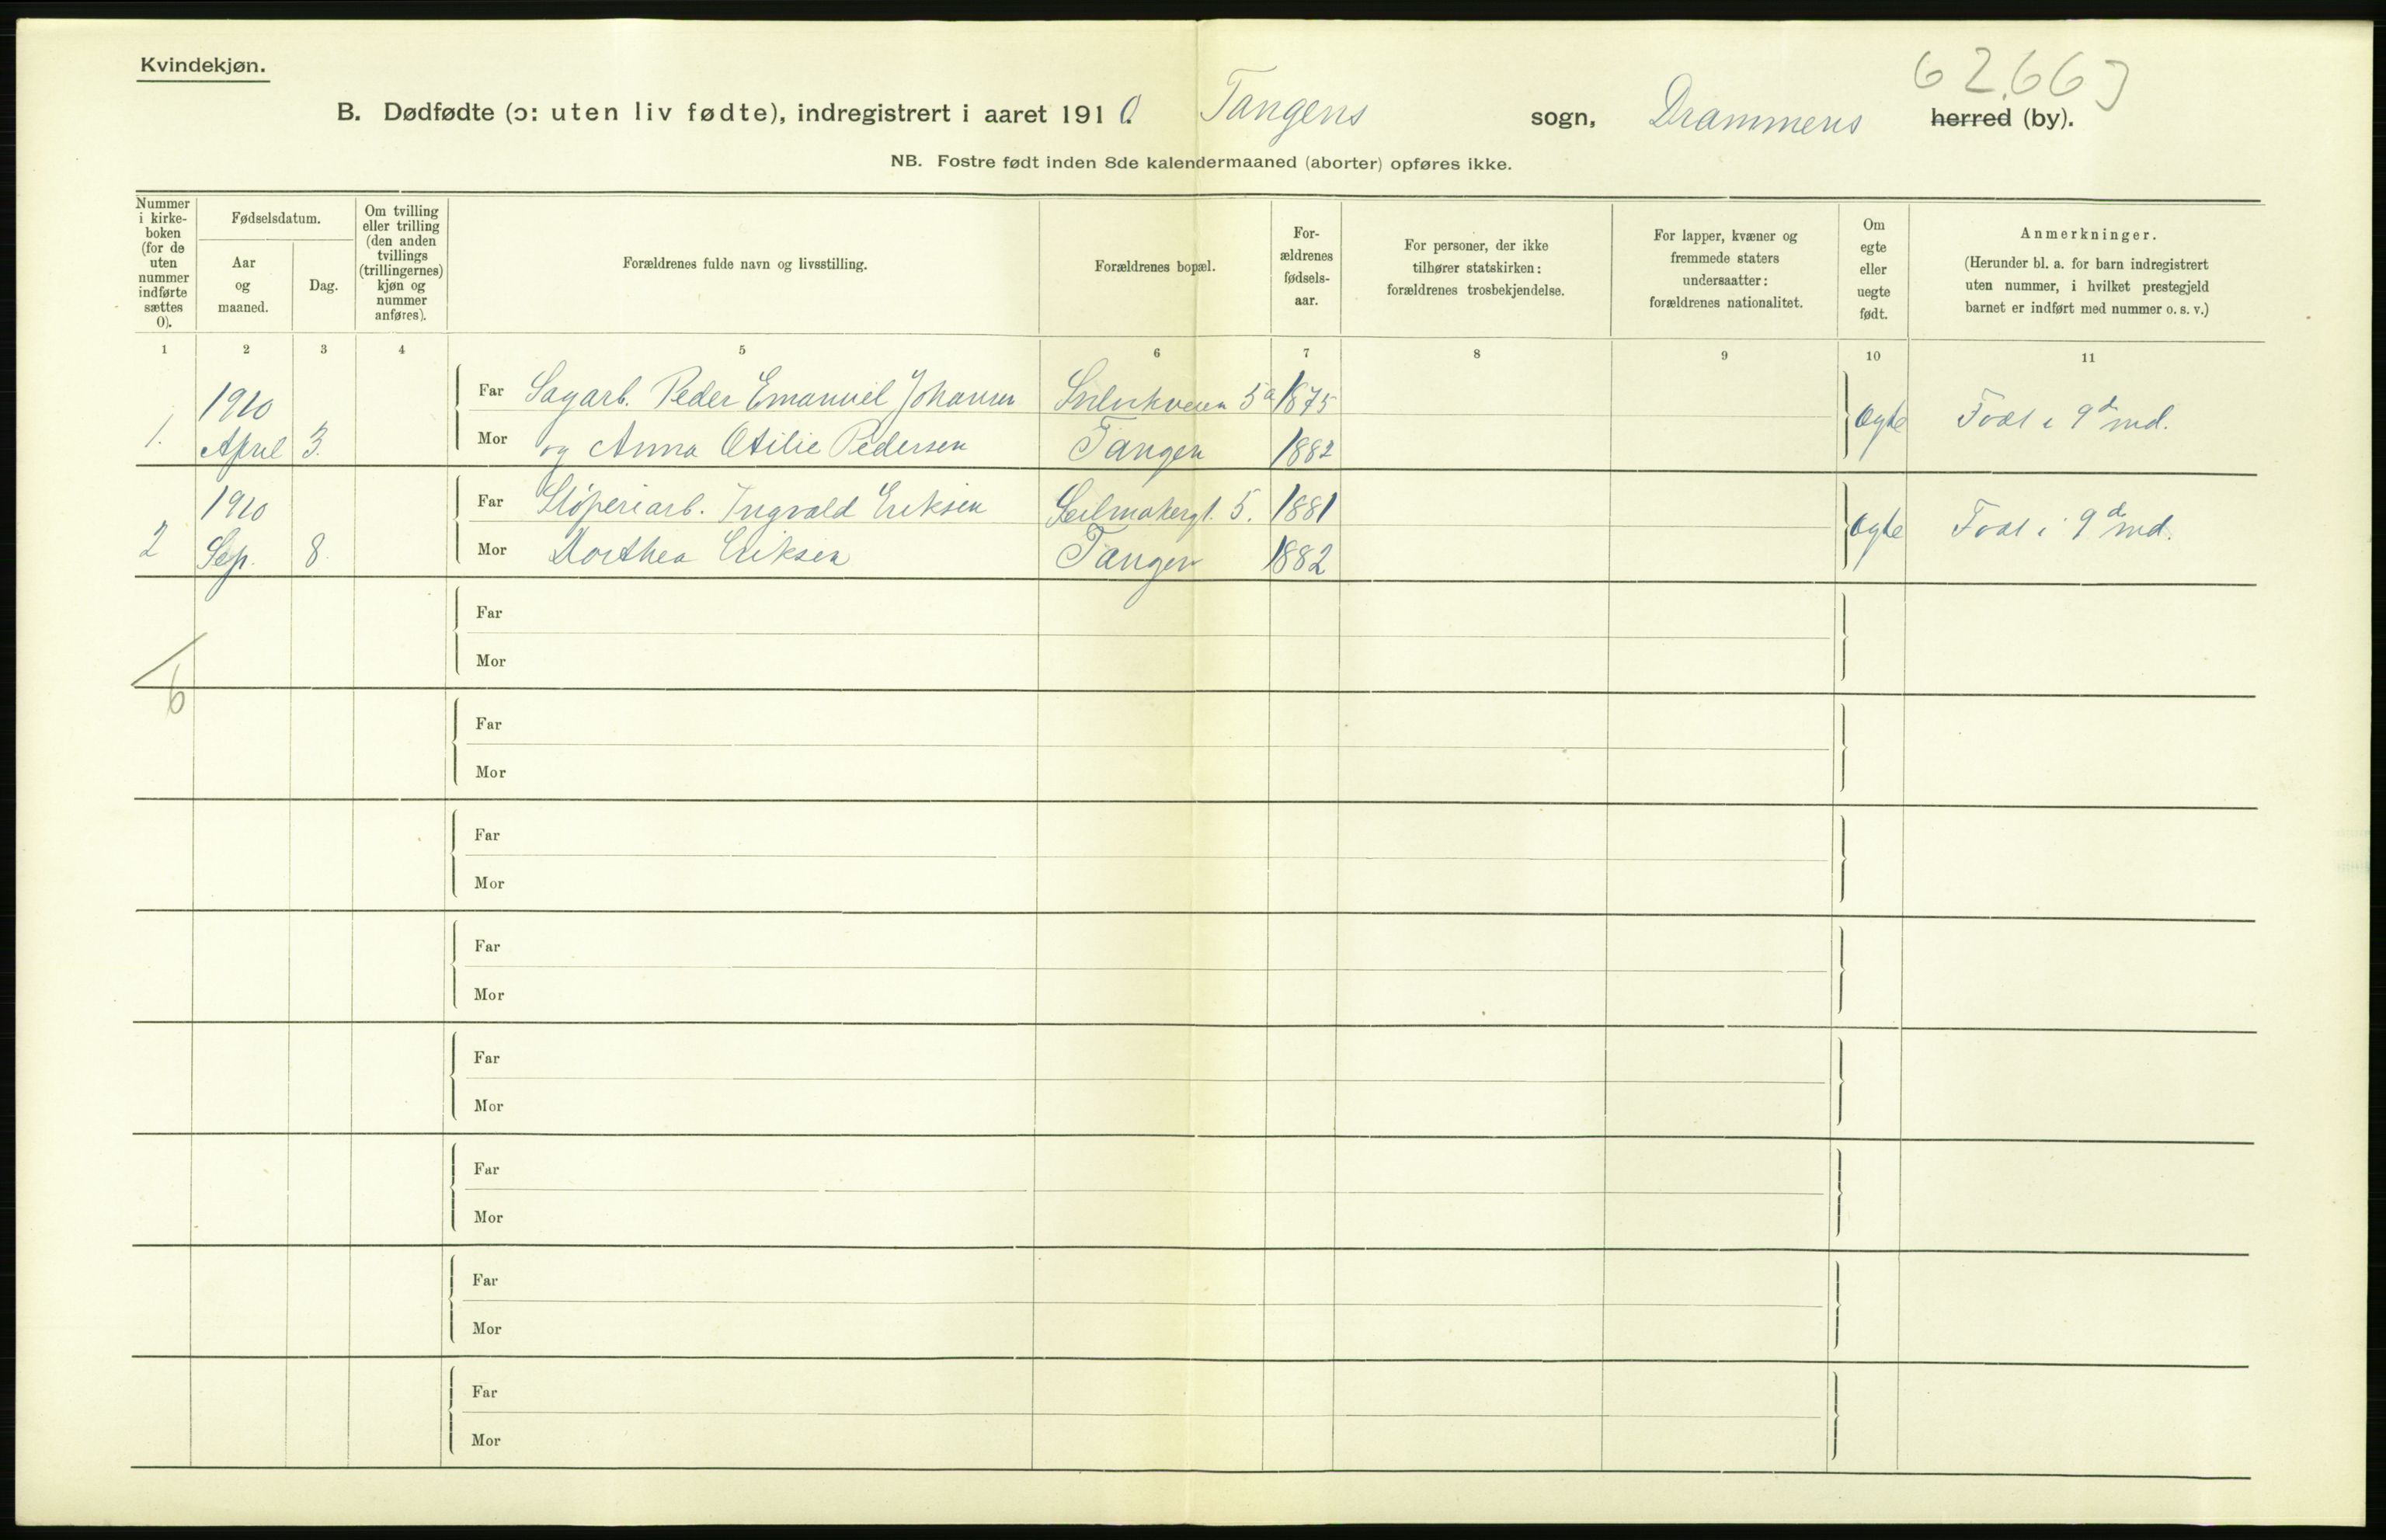 Kvindekjøn.
62.663
B. Dødfødte (ɔ: uten liv fødte), indregistrert i aaret 1910. Tangens sogn, Drammens herred (by).
NB. Fostre født inden 8de kalendermaaned (aborter) opføres ikke.
Nummer
i kirke-
boken
(for de
uten
nummer
indførte
sættes
0).
Fødselsdatum.
Aar
og
maaned.
Dag.
Om tvilling
eller trilling
(den anden
tvillings
(trillingernes)
kjøn og
nummer
anføres).
Forældrenes fulde navn og livsstilling.
Forældrenes bopæl.
For-
ældrenes
fødsels-
aar.
For personer, der ikke
tilhører statskirken:
forældrenes trosbekjendelse.
For lapper, kvæner og
fremmede staters
undersaatter:
forældrenes nationalitet.
Om
egte
eller
uegte
født.
Anmerkninger.
(Herunder bl. a. for barn indregistrert
uten nummer, i hvilket prestegjeld
barnet er indført med nummer o. s. v.)
1 2 3 4 5 6 7 8 9 10 11
1910 Far Sagarb. Peder Emanuel Johansen 5a 1875
1. April 3. Mor og Anna Otilie Pedersen Tangen 1882 Ægte Født i 9d md.
1910 Far Støperiarb. Ingvald Eriksen Seilmakergt. 5. 1881
2 Sep. 8. Mor Dorthea Eriksen Tangen 1882 Ægte Født i 9d md.
Far
Mor
6
Far
Mor
Far
Mor
Far
Mor
Far
Mor
Far
Mor
Far
Mor
Far
Mor